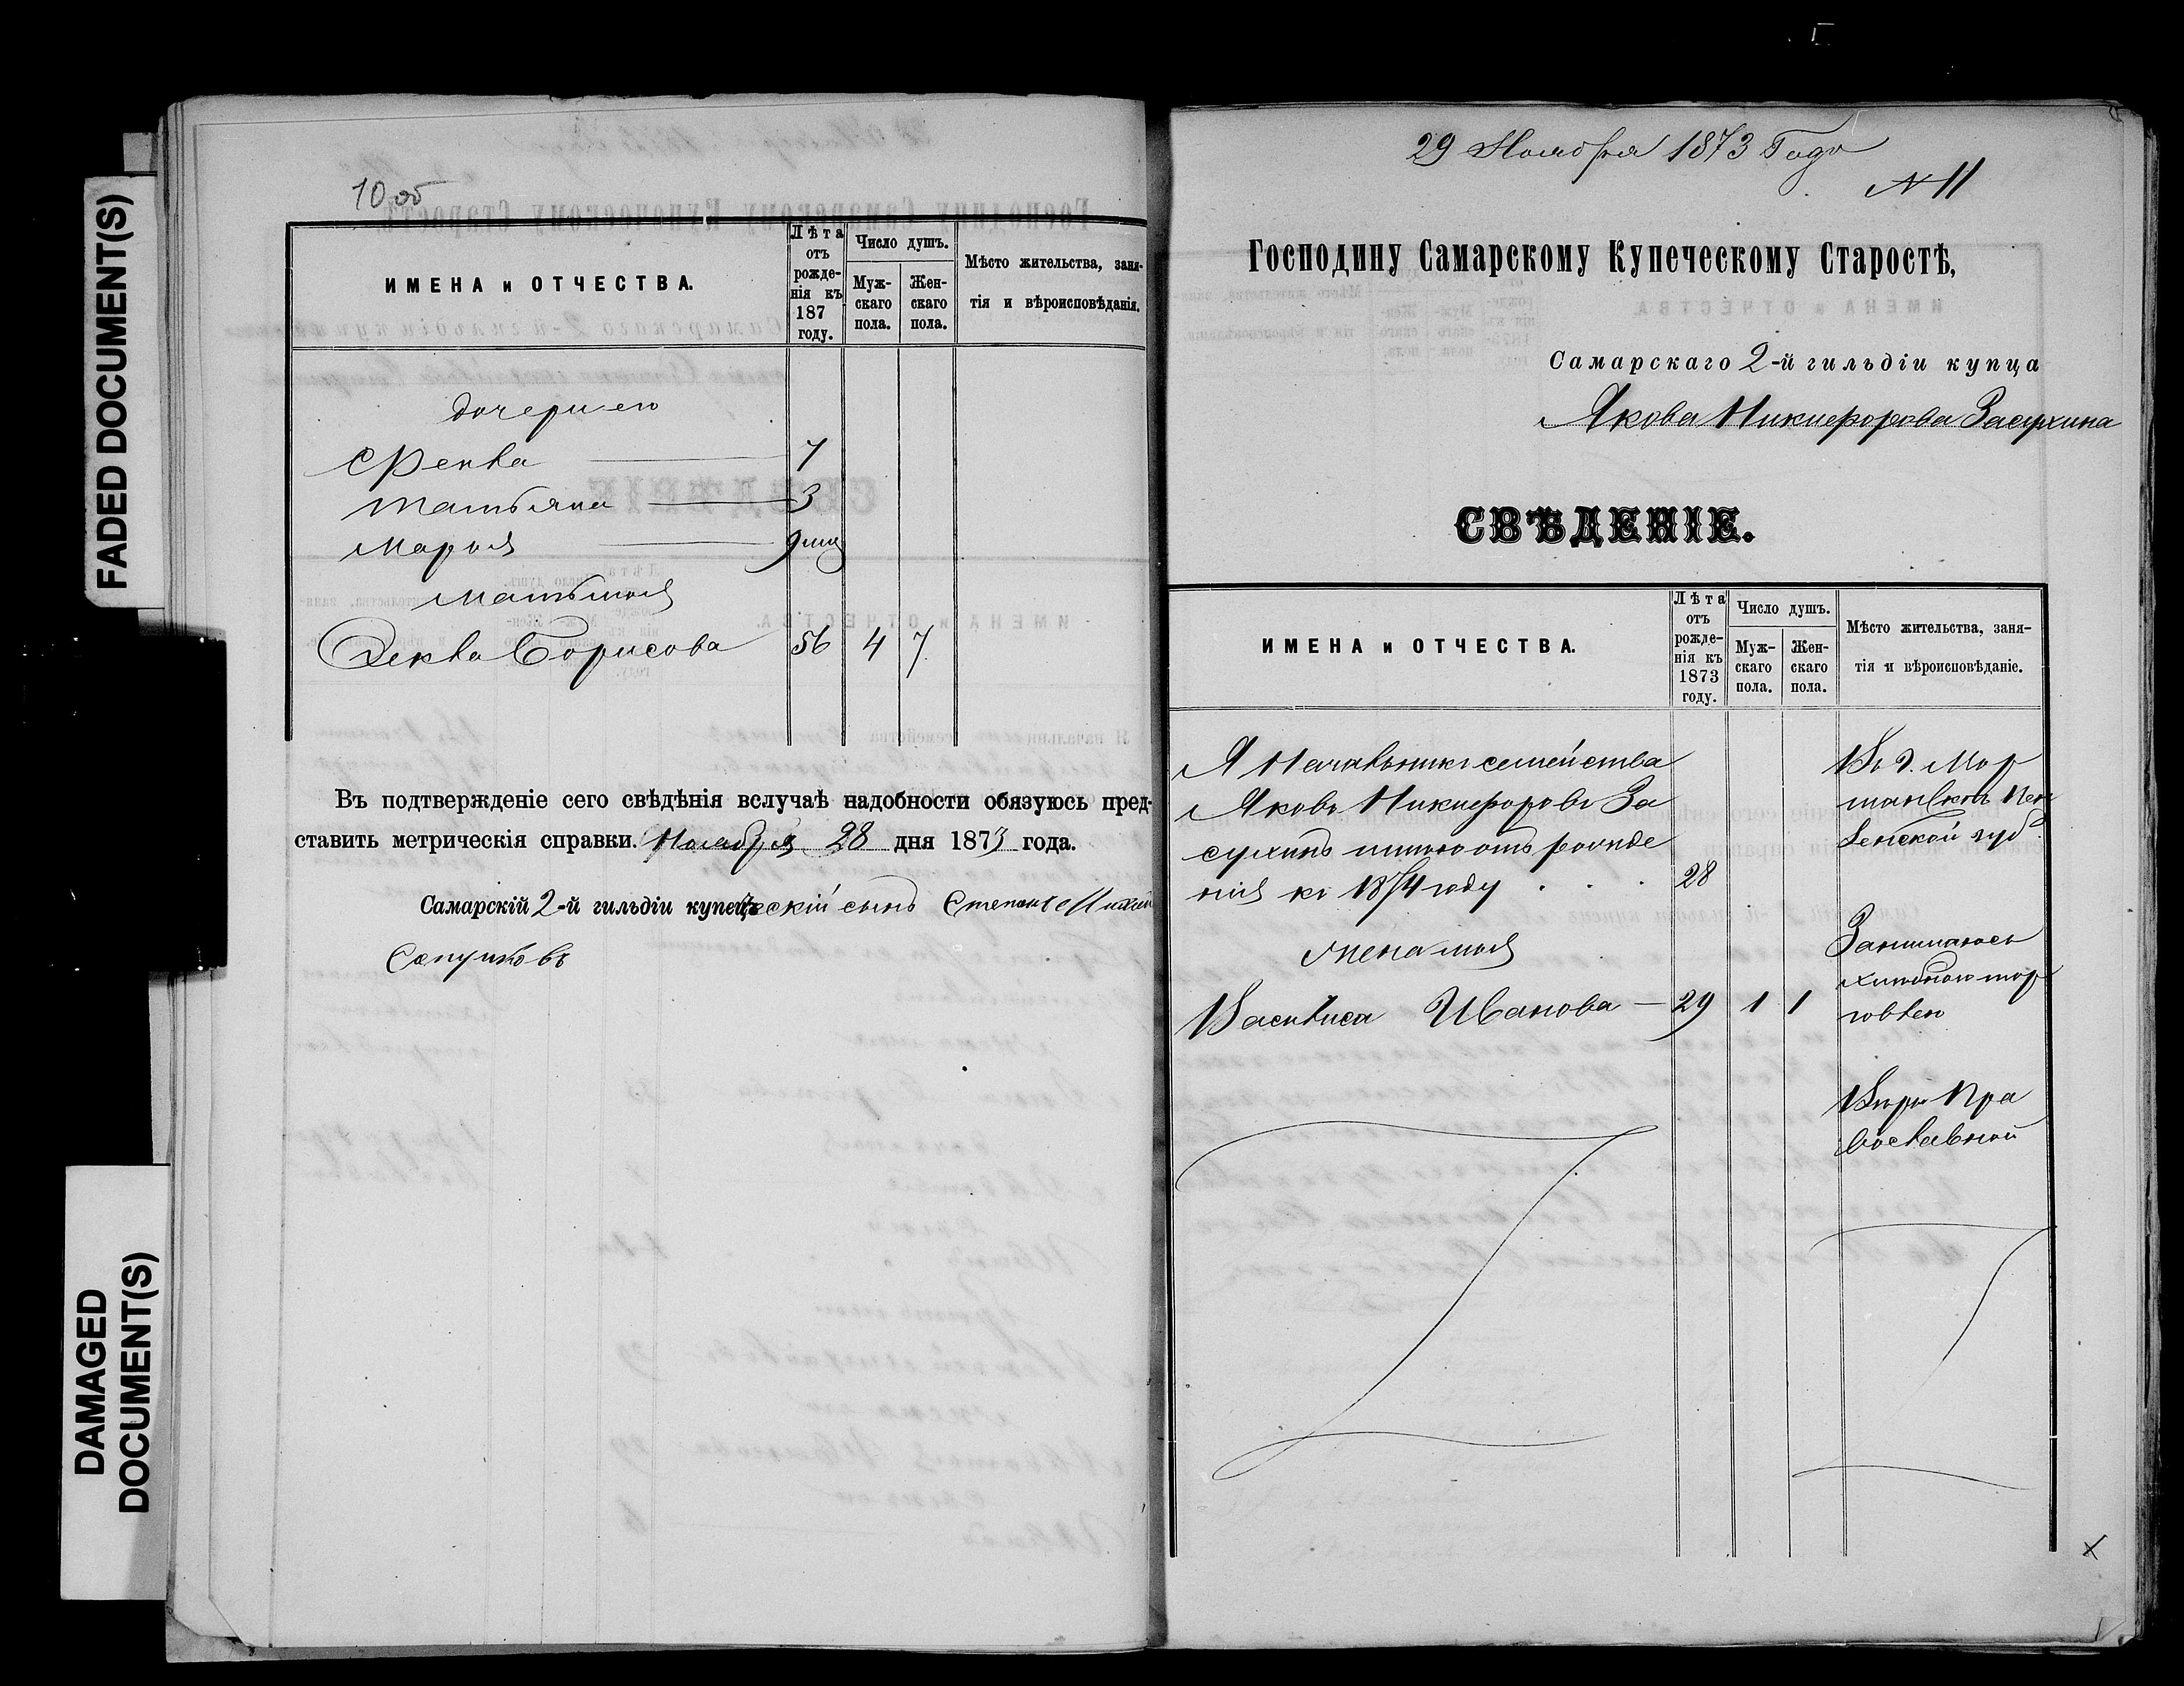 FADED DOCUMENT(S)
DAMAGED
DOCUMENT(S)
10 об
ИМЕНА и ОТЧЕСТВА.
Лѣта
отъ
рожде-
нія къ
187
году.
Число душъ.
Муж-
скаго
пола.
Жен-
скаго
пола.
Мѣсто жительства, заня-
тія и вѣроисповѣданія.
дочери его
Фекла 7
Татьяна 3
Марья 9 мц
Мать моя
Фекла Борисова 56 4 7
Въ подтвержденіе сего свѣдѣнія вслучаѣ надобности обязуюсь пред-
ставить метрическія справки. Ноября 28 дня 1873 года.
Самарскій 2-й гильдіи купеческій сынъ Степанъ
29 Ноября 1873 Года
N 11
Господину Самарскому Купеческому Старостѣ,
Самарскаго 2-й гильдіи купца
Якова Никифорова Засухина
СВѢДЕНІЕ.
ИМЕНА и ОТЧЕСТВА.
Лѣта
отъ
рожде-
нія къ
1873
году.
Число душъ.
Муж-
скаго
пола.
Жен-
скаго
пола.
Мѣсто жительства, заня-
тія и вѣроисповѣданіе.
Я Начальникъ семейства
Яковъ Никифоровъ За
сухинъ имѣю отъ рожде
нія къ 1874 году . . . 28
жена моя
Василиса Иванова — 29 1 1
Въ г. Мор
шанскѣ Пен
зенской губ
Занимаюсь
хлѣбною тор
говлею
Вѣры Пра
вославной